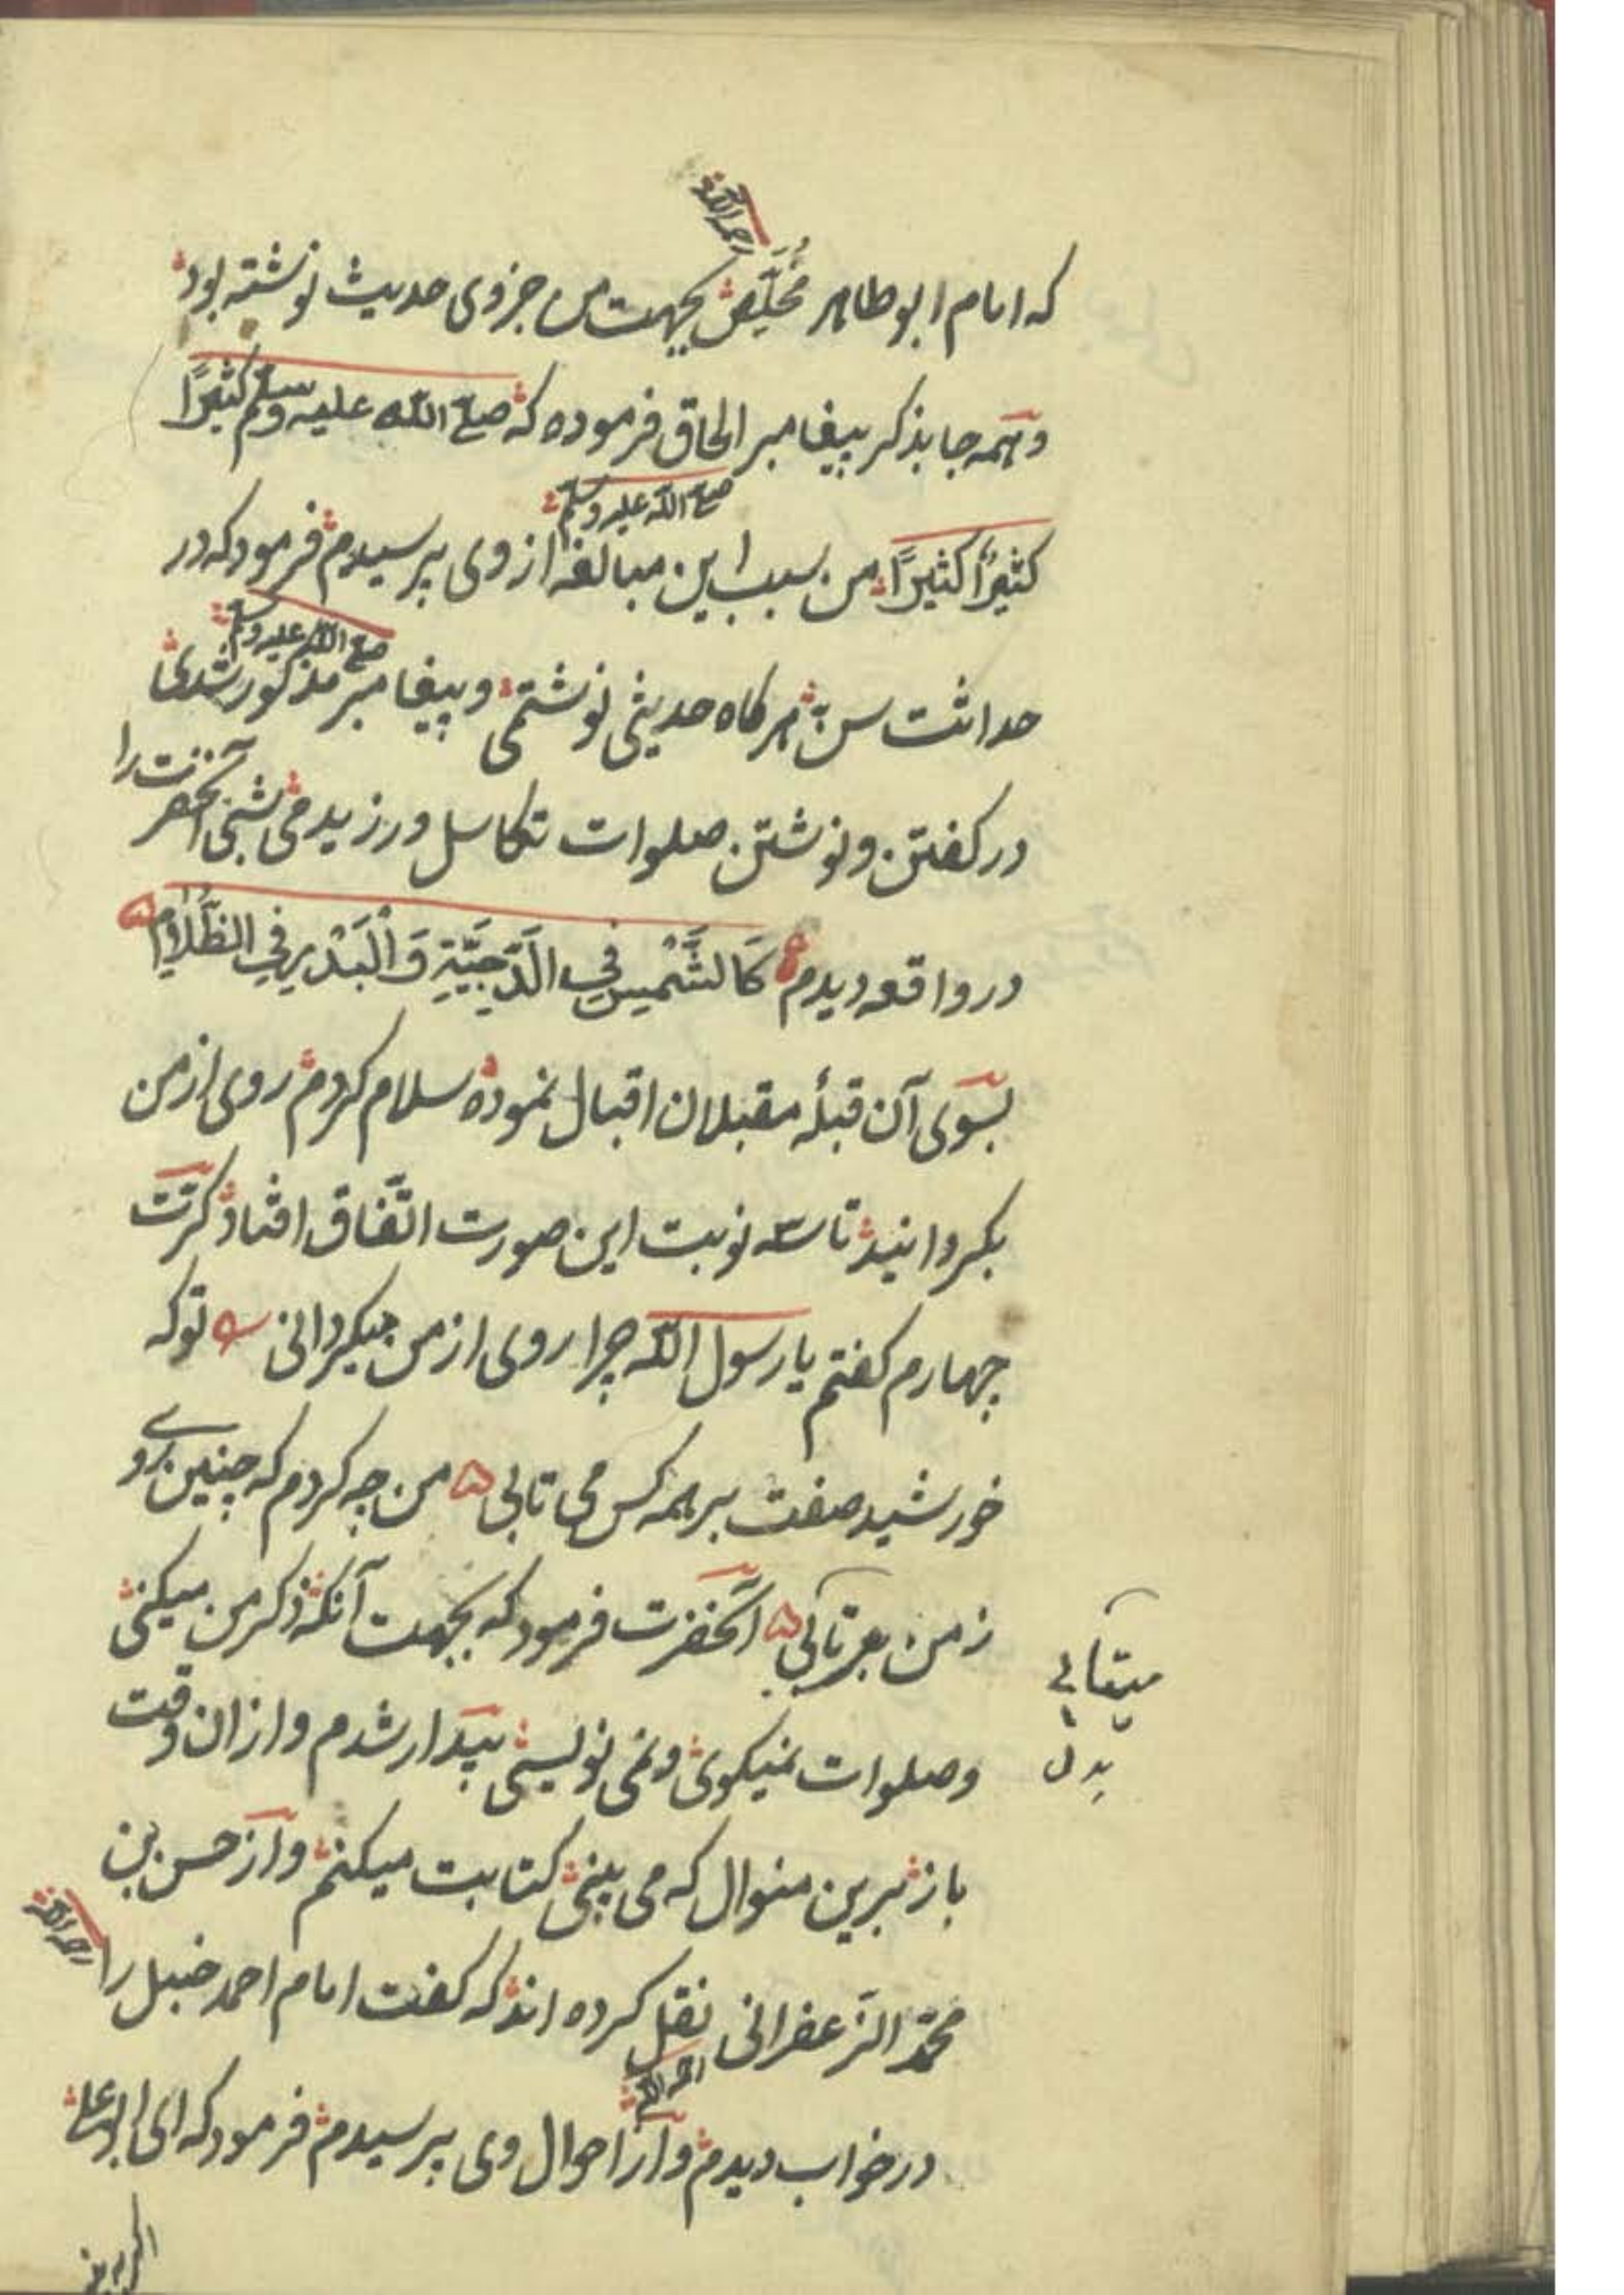 رحمه الله
که امام ابو طاهر مُخَلِّص بجهت من جزوی حدیث نوشته بود
و همه جا بذکر پیغامبر الحاق فرموده که صلی الله علیه وسلم کثیرًا
صلی الله علیه وسلم
کثیرًا کثیرًا من سبب این مبالغه از وی پرسیدم فرمود که در
صلی الله علیه وسلم
حداثت سن هرکاه حدیثی نوشتمی و پیغامبر مذکور شدی
در کفتن و نوشتن صلوات تکاسل ورزیدمی شبی آنحضرت را
در واقعه دیدم کَالشَّمْسِ فِي الدَّجِیَّةِ وَالْبَدْرِ فِي الظَّلَامِ
بسوی آن قبلهٔ مقبلان اقبال نموده سلام کردم روی از من
بکردانید تا سه نوبت این صورت اتّفاق افتاد کرّت
چهارم کفتم یا رسول الله چرا روی از من میکردانی تو که
خورشید صفت بر همه کس می تابی من چه کردم که چنین روی
ز من بر تابی آنحضرت فرمود که بجهت آنکه ذکر من میکنی
میتابی
بدل
و صلوات نمیکوی و نمی نویسی بیدار شدم و ازان وقت
باز برین منوال که می بینی کتابت میکنم و از حسن بن
رحمه الله
محمّد الزعفرانی نقل کرده اند که کفت امام احمد حنبل را
رحمه الله
در خواب دیدم و از احوال وی پرسیدم فرمود که ای ابو علی